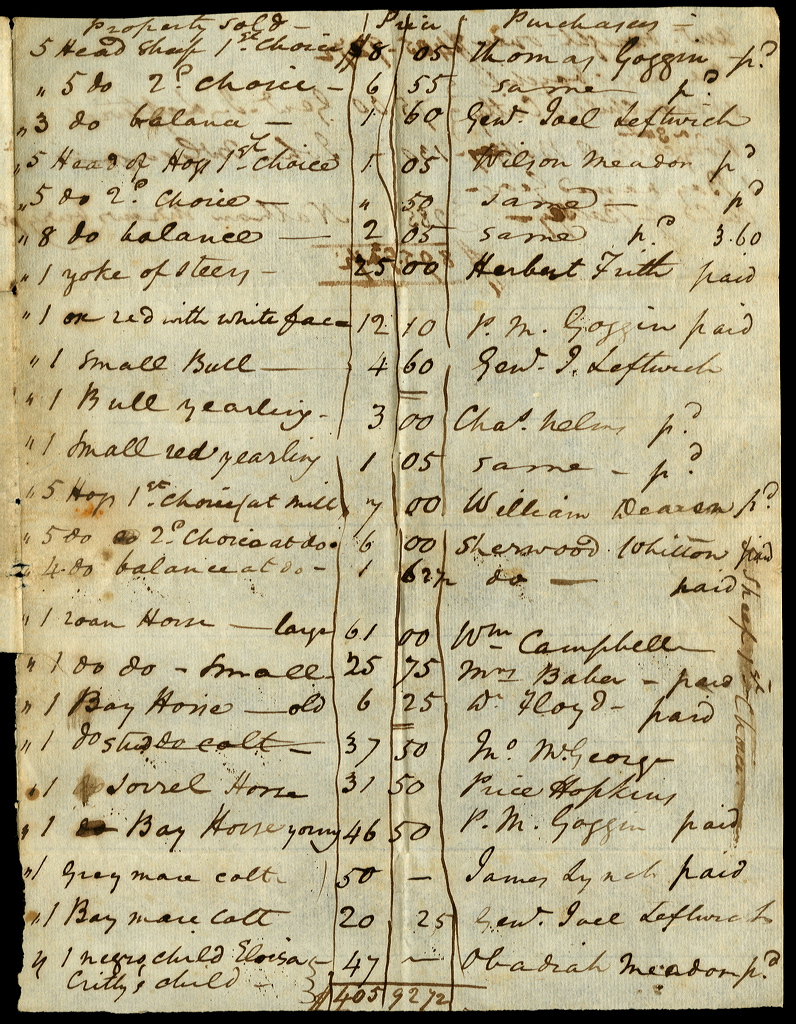 Property sold - Price Purchasers -
5 Head Sheep 1st Choice $8 05 Thomas Goggin pd
" 5 do 2d choice - 6 55 same pd
" 3 do balance - 1 60 Genl. Joel Leftwich
" 5 Head of Hogs 1st Choice 1 05 Wilson Meador pd
" 5 do 2d Choice - " 50 same - pd
" 8 do balance - 2 05 same pd 3.60
" 1 yoke of Steers - 25 00 Herbert Frith paid
" 1 ox red with white face 12 10 P. M. Goggin paid
" 1 Small Bull - 4 60 Genl. J. Leftwich
" 1 Bull yearling - 3 00 Chas. Nelms pd
" 1 Small red yearling 1 05 same - pd
" 5 Hogs 1st Choice (at mill 7 00 William pd
" 5 do 2d Choice at do. 6 00 Sherwood Whitton paid
" 4 do balance at do - 1 62½ do - paid
" 1 roan Horse - large 61 00 Wm Campbell
" 1 do do - Small 25 75 Mrs Baber - paid
" 1 Bay Horse - old 6 25 Dr. Floyd - paid
" 1 do stud do colt - 37 50 Jno McGeorge
" 1 do Sorrel Horse 31 50 Price Hopkins
" 1 do Bay Horse young 46 50 P. M. Goggin paid
" 1 Grey mare colt 50 — James Lynch paid
" 1 Bay mare Colt 20 25 Genl. Joel Leftwich
" 1 negro child Eloisa - 47 — Obadiah Meador pd
Critty's child -
$405 92½
Sheep 1st Choice